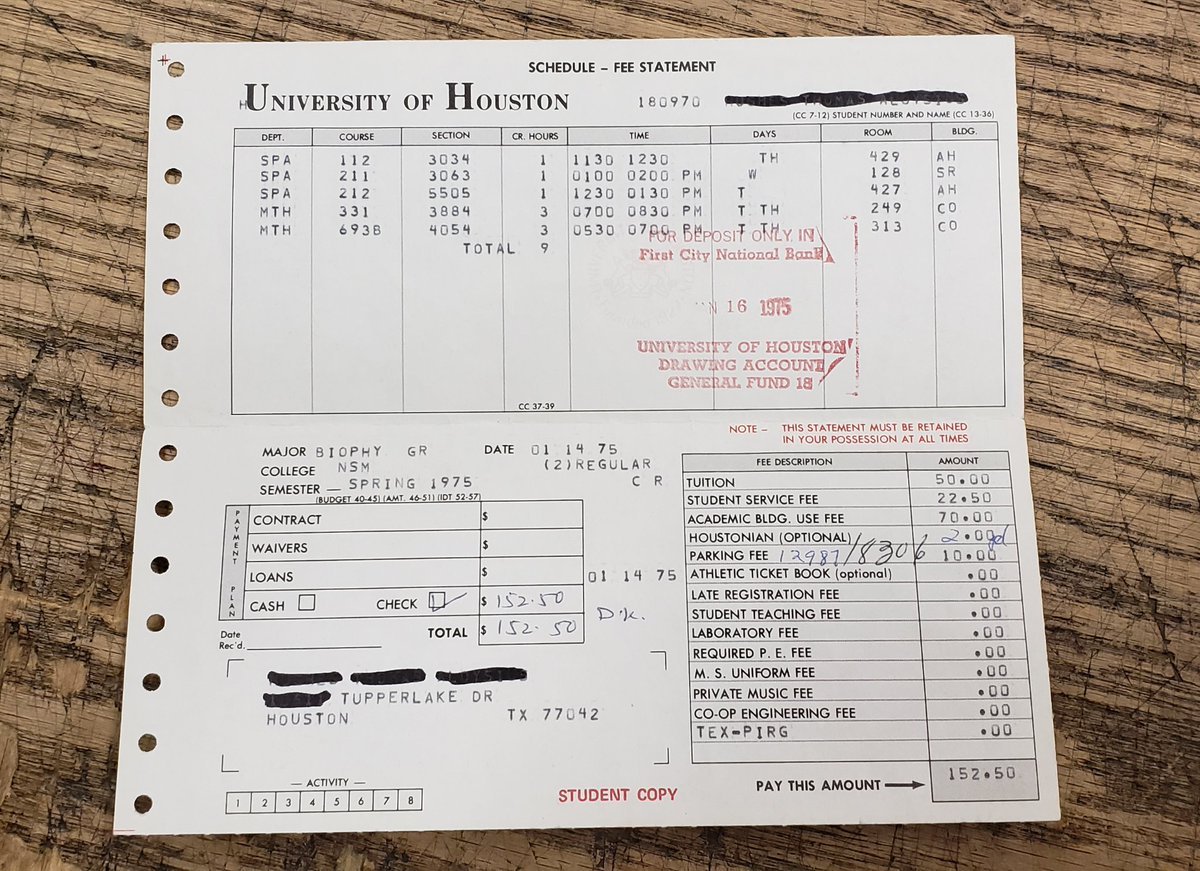 SCHEDULE – FEE STATEMENT
UNIVERSITY OF HOUSTON 180970
(CC 7-12) STUDENT NUMBER AND NAME (CC 13-36)
DEPT. COURSE SECTION CR. HOURS TIME DAYS ROOM BLDG.
SPA 112 3034 1 1130 1230 TH 429 AH
SPA 211 3063 1 0100 0200 PM W 128 SR
SPA 212 5505 1 1230 0130 PM T 427 AH
MTH 331 3884 3 0700 0830 PM T TH 249 CO
MTH 693B 4054 3 0530 0700 PM T TH 313 CO
TOTAL 9
FOR DEPOSIT ONLY IN
First City National Bank
16 1975
UNIVERSITY OF HOUSTON
DRAWING ACCOUNT
GENERAL FUND 18
CC 37-39
NOTE – THIS STATEMENT MUST BE RETAINED
IN YOUR POSSESSION AT ALL TIMES
MAJOR BIOPHY GR DATE 01 14 75
COLLEGE NSM (2)REGULAR
SEMESTER — SPRING 1975 C R
(BUDGET 40-45) (AMT. 46-51) (IDT 52-57)
PAYMENT PLAN
CONTRACT $
WAIVERS $
LOANS $
01 14 75
CASH CHECK $ 152.50
TOTAL $ 152.50
Date
Rec'd.
TUPPERLAKE DR
HOUSTON TX 77042
— ACTIVITY —
1 2 3 4 5 6 7 8
STUDENT COPY
FEE DESCRIPTION AMOUNT
TUITION 50.00
STUDENT SERVICE FEE 22.50
ACADEMIC BLDG. USE FEE 70.00
HOUSTONIAN (OPTIONAL) 2.00
PARKING FEE 12987/8306 10.00
ATHLETIC TICKET BOOK (optional) .00
LATE REGISTRATION FEE .00
STUDENT TEACHING FEE .00
LABORATORY FEE .00
REQUIRED P. E. FEE .00
M. S. UNIFORM FEE .00
PRIVATE MUSIC FEE .00
CO-OP ENGINEERING FEE .00
TEX-PIRG .00
PAY THIS AMOUNT 152.50